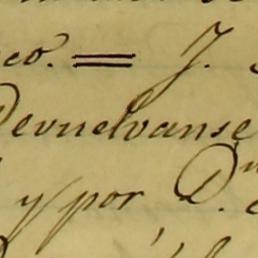 co. = J.
Devuelvanse
y por D.